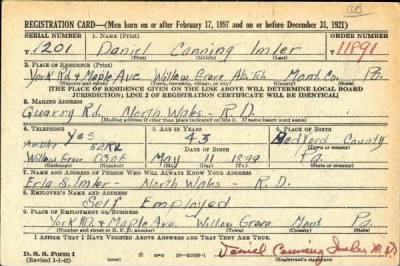 REGISTRATION CARD—(Men born on or after February 17, 1897 and on or before December 31, 1921)
SERIAL NUMBER 1. NAME (Print) ORDER NUMBER
T 1201 Daniel Canning Imler 11891
(First) (Middle) (Last)
2. PLACE OF RESIDENCE (Print)
York Rd & Maple Ave Willow Grove Mont. Co. Pa.
(Number and street) (Town, township, village, or city) (County) (State)
[THE PLACE OF RESIDENCE GIVEN ON THE LINE ABOVE WILL DETERMINE LOCAL BOARD
JURISDICTION; LINE 2 OF REGISTRATION CERTIFICATE WILL BE IDENTICAL]
3. MAILING ADDRESS
Quarry Rd. North Wales - R.D.
[Mailing address if other than place indicated on line 2. If same insert word same]
4. TELEPHONE 5. AGE IN YEARS 6. PLACE OF BIRTH
Yes 43 Bedford County
Ambler DATE OF BIRTH (Town or county)
Willow Grove 0306 May 11 1899 Pa.
(Exchange) (Number) (Mo.) (Day) (Yr.) (State or country)
7. NAME AND ADDRESS OF PERSON WHO WILL ALWAYS KNOW YOUR ADDRESS
Erla S. Imler - North Wales - R.D.
8. EMPLOYER'S NAME AND ADDRESS
Self Employed
9. PLACE OF EMPLOYMENT OR BUSINESS
York Rd & Maple Ave Willow Grove Mont Pa.
(Number and street or R. F. D. number) (Town) (County) (State)
I AFFIRM THAT I HAVE VERIFIED ABOVE ANSWERS AND THAT THEY ARE TRUE.
D. S. S. Form 1
(Revised 1-1-42) (over) GPO 16—21630-1 Daniel Canning Imler M.D.